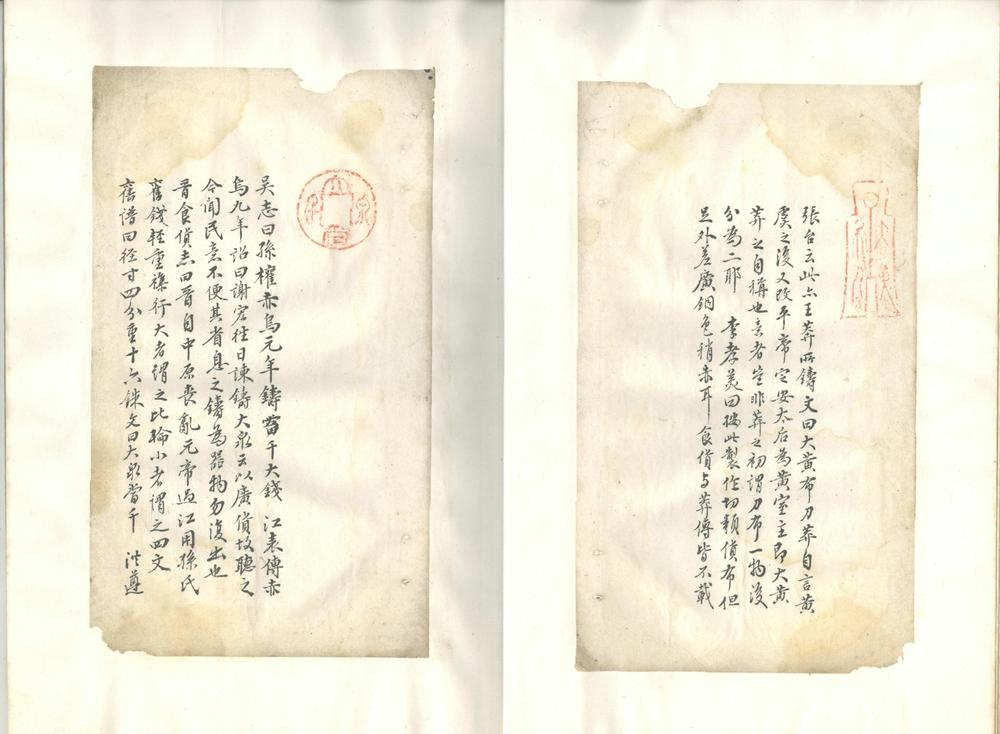 張台云此亦王莽所鑄文曰大黃布刀莽自言黃
虞之後又改平帝定安太后為黃室主即大黃
莽之自稱也意者豈非莽之初謂刀布一物後
分為二耶　李孝美曰按此製作切類貨布但
足外差廣銅色稍赤耳食貨与莽傳皆不載
吳志曰孫權赤烏元年鑄當千大錢　江表傳赤
烏九年詔曰謝宏往日諫鑄大泉云以廣貨故聽之
今聞民意不便其省息之鑄為器物勿復出也
晉食貨志曰晉自中原喪亂元帝過江用孫氏
舊錢輕重襍行大者謂之比輪小者謂之四文
舊譜曰徑寸四分重十六銖文曰大泉當千　洪遵